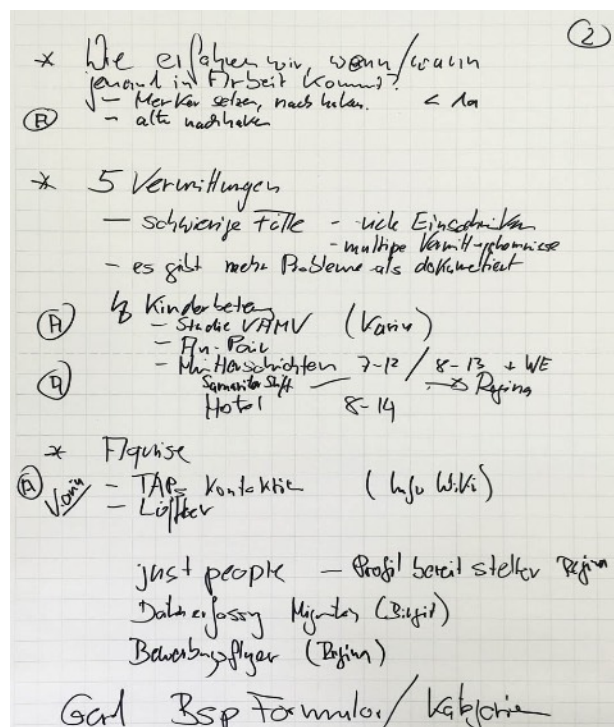 2
* Wie erfahren wir, wenn/wann
jemand in Arbeit kommt?
- Merker setzen, nachhaken. < 1a
- alte nachhaken
* 5 Vermittlungen
- schwierige Fälle - viele
- multiple
- es gibt mehr Probleme als dokumentiert
↳ Kinderbetreu
A - Studie VAMV (Karin)
- Au-Pair
- Mütterschichten 7-12 / 8-13 + WE
Samariterstift → Regina
Hotel 8-14
* Aquise
A Karin - TAPs kontaktie (Info Wiki)
-
just people - Profil bereit stellen Regina
Datenerfassung Migranten (Birgit)
Bewerbungsflyer (Regina)
Gerd Bsp Formular / Kategorien